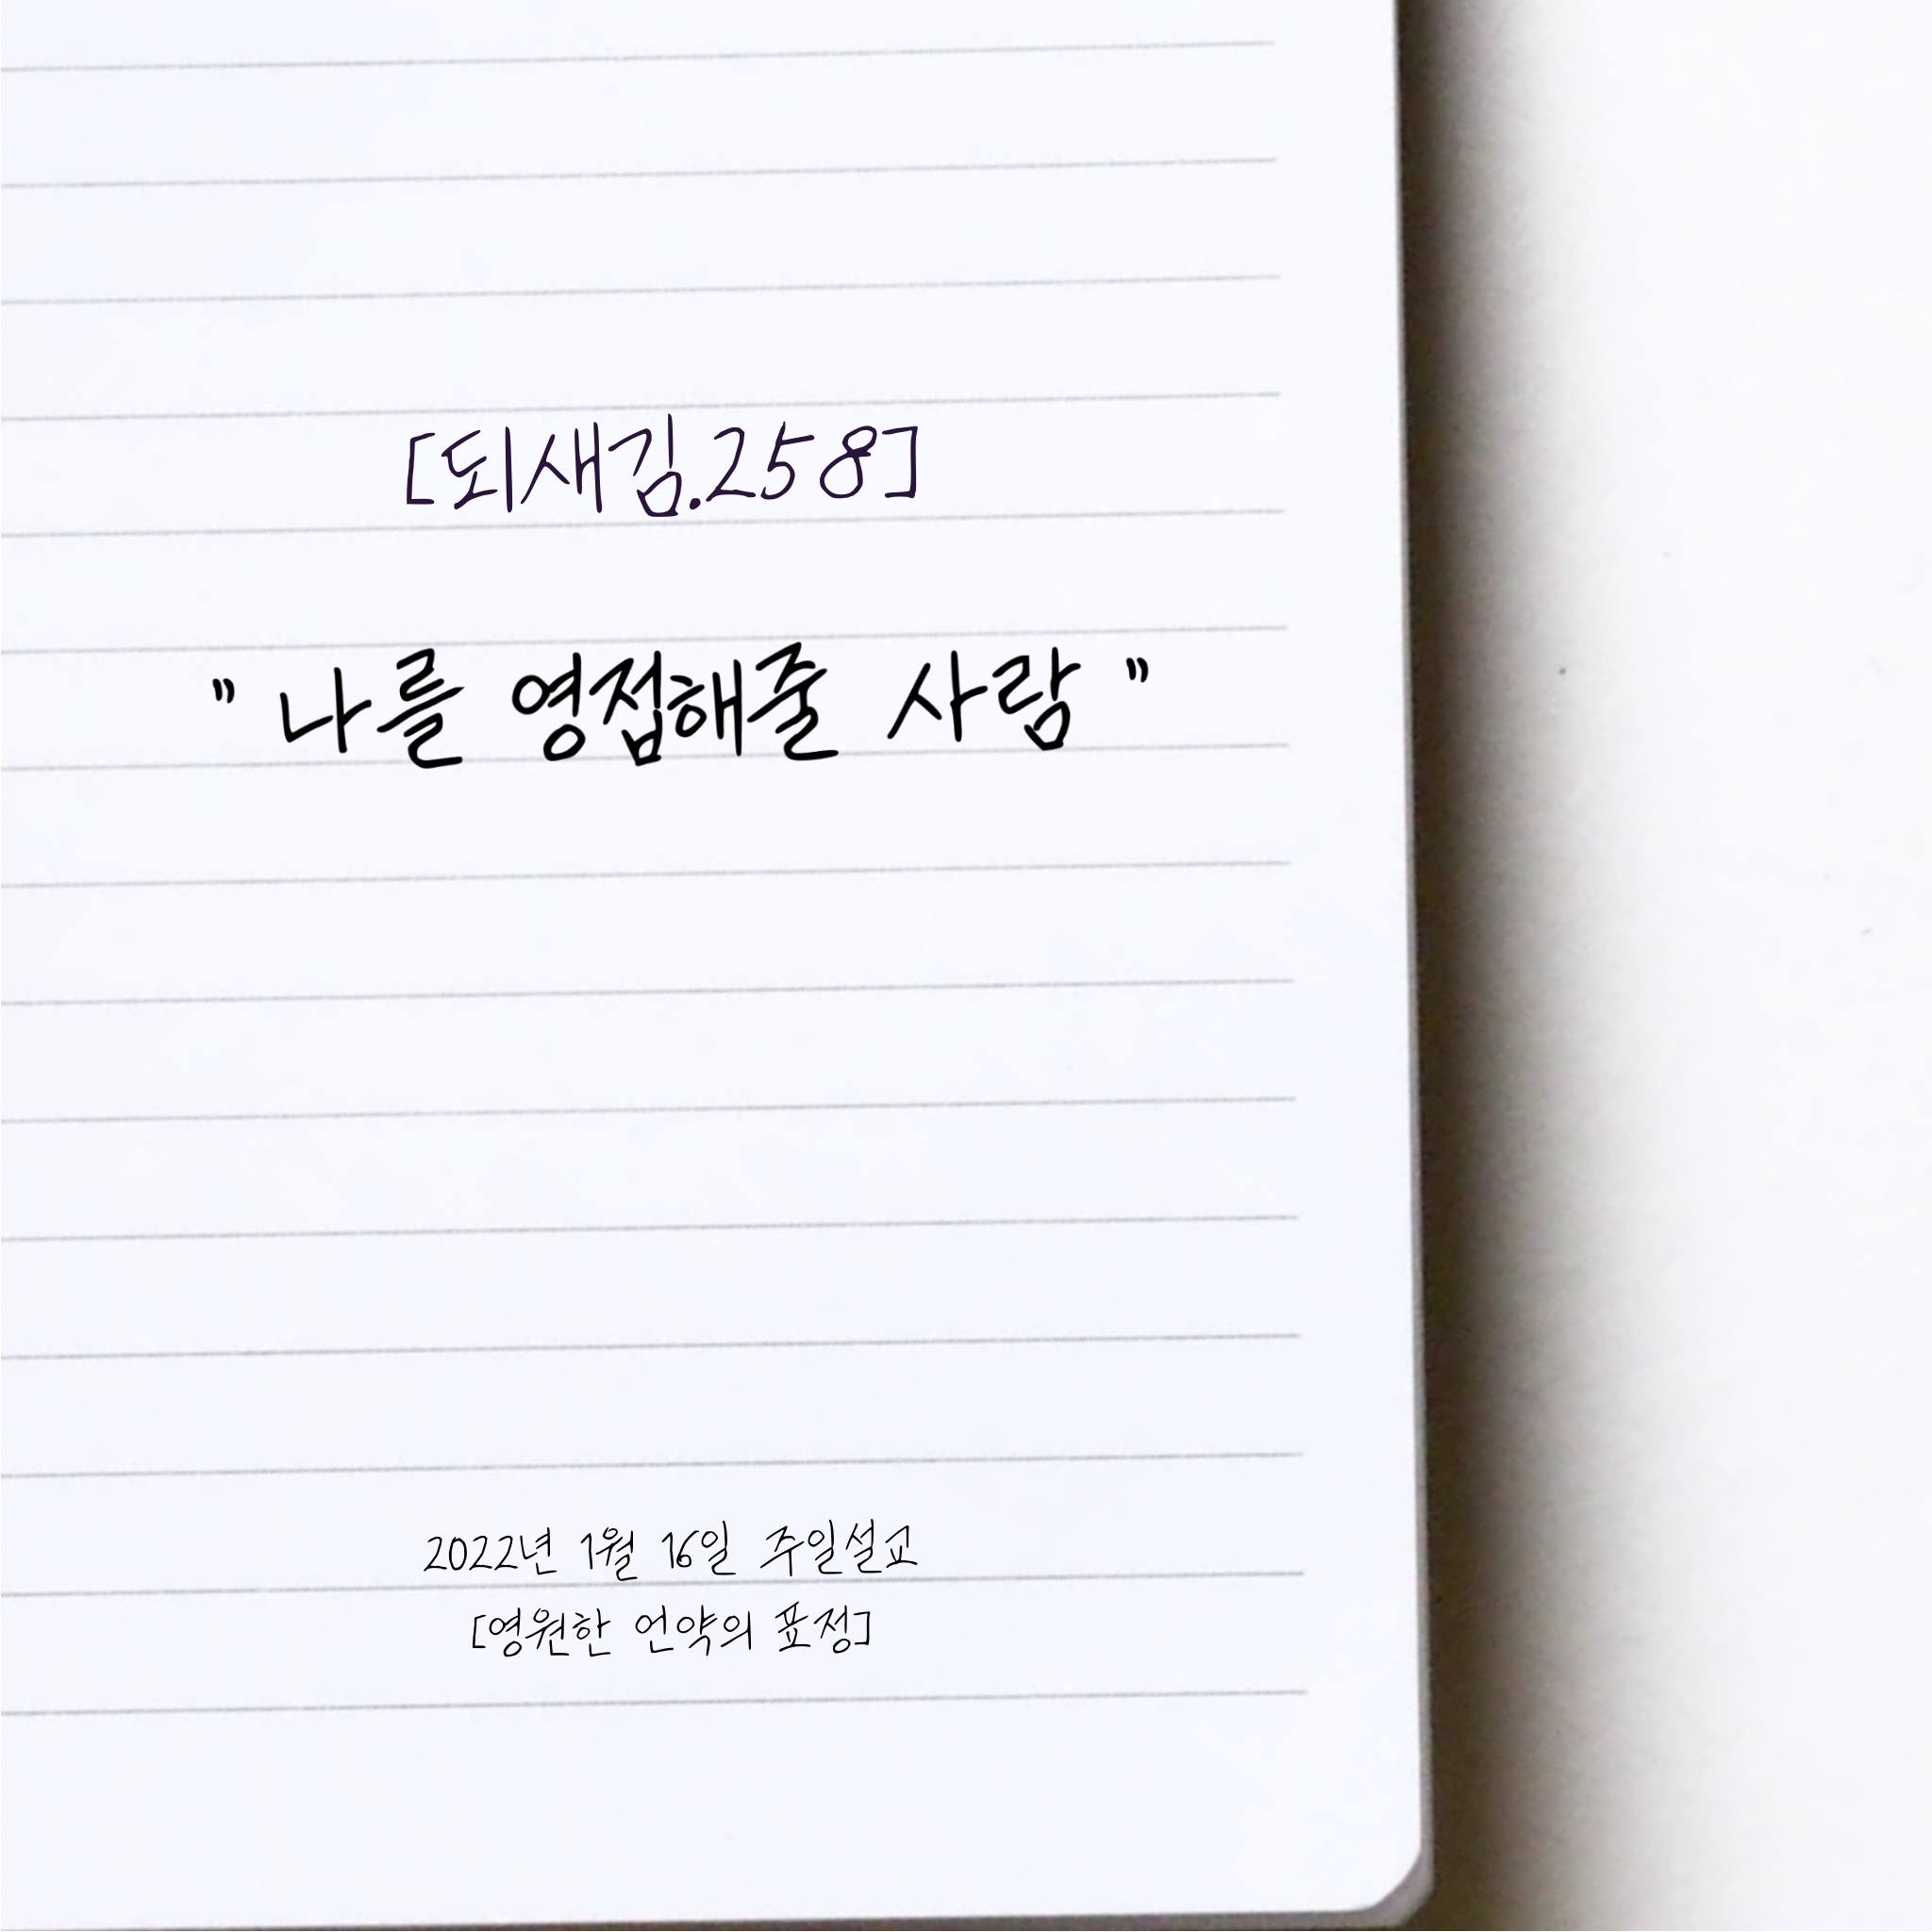 [되새김.258]
" 나를 영접해줄 사람 "
2022년 1월 16일 주일설교
[영원한 언약의 표정]